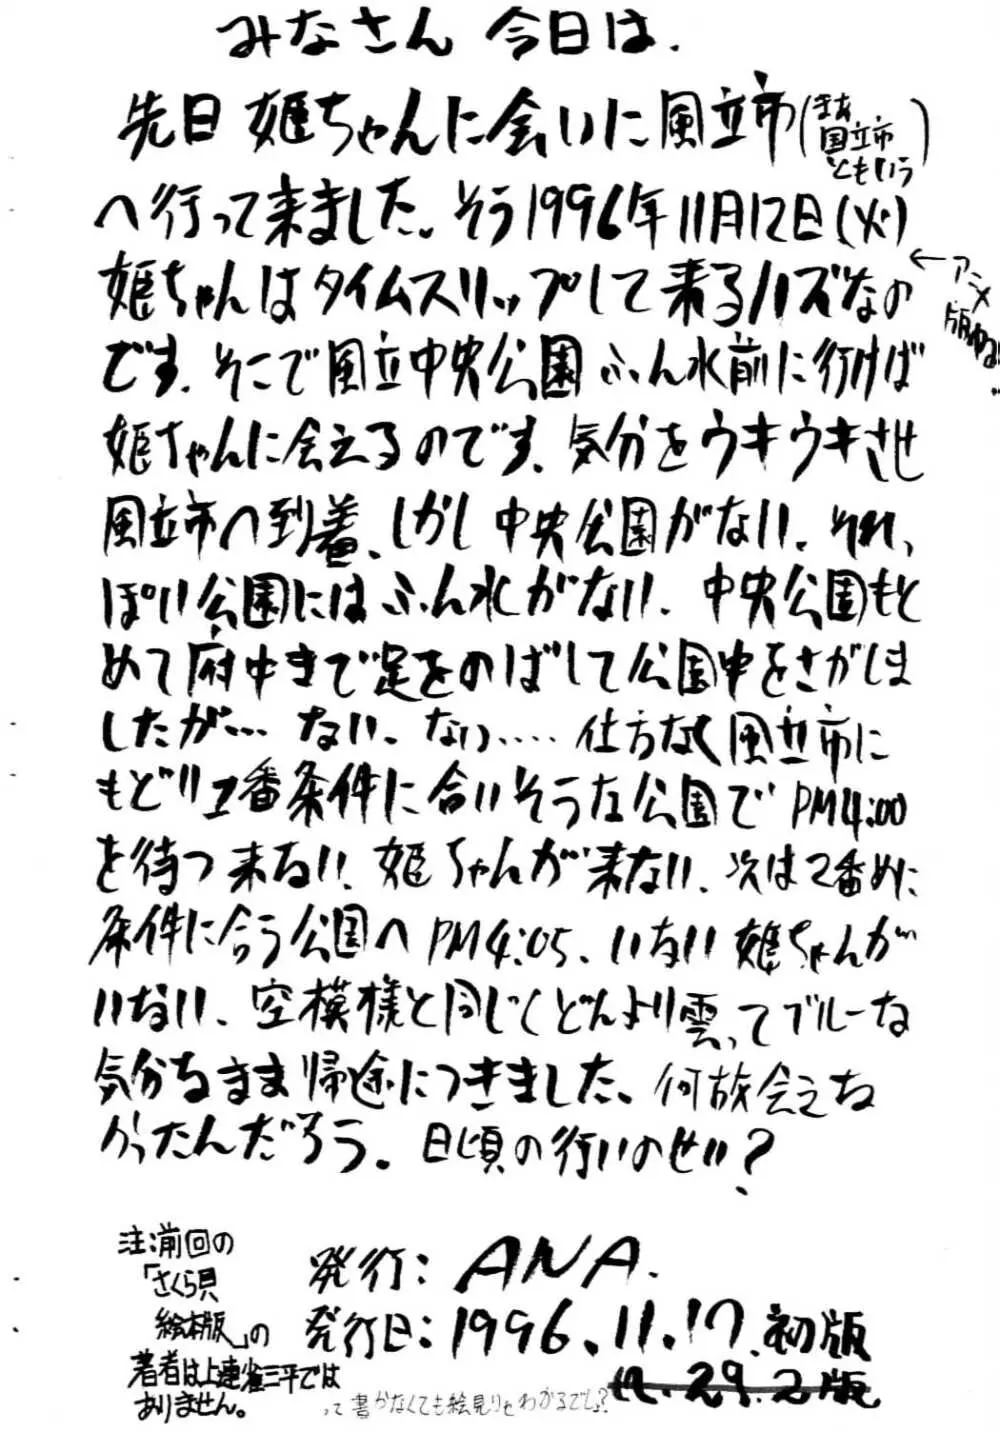 みなさん 今日は.
先日 姫ちゃんに会いに風立市(まあ国立市ともいう)
へ行って来ました。そう1996年11月12日(火)
←アニメ版ゆる!..
姫ちゃんはタイムスリップして来るハズなの
です. そこで風立中央公園 ふん水前に行けば
姫ちゃんに会えるのです. 気分をウキウキさせ
風立市へ到着、しかし中央公園がない. それっ
ぽい公園にはふん水がない. 中央公園もと
めて府中まで足をのばして公園中をさがしま
したが… ない. ない..... 仕方なく風立市に
もどり1番条件に合いそうな公園でPM4:00
を待つ 来ない. 姫ちゃんが来ない. 次は2番めに
条件に合う公園へPM4:05、いない 姫ちゃんが
いない、空模様と同じくどんより雲ってブルーな
気分なまま帰途につきました。何故会えな
かったんだろう。日頃の行いのせい?
注:前回の
「さくら貝
絵本版」の
著者は上連雀三平では
ありません。
発行: ANA.
発行日:1996.11.17.初版
12.29.2版
って書かなくても絵見りゃわかるでしょ?